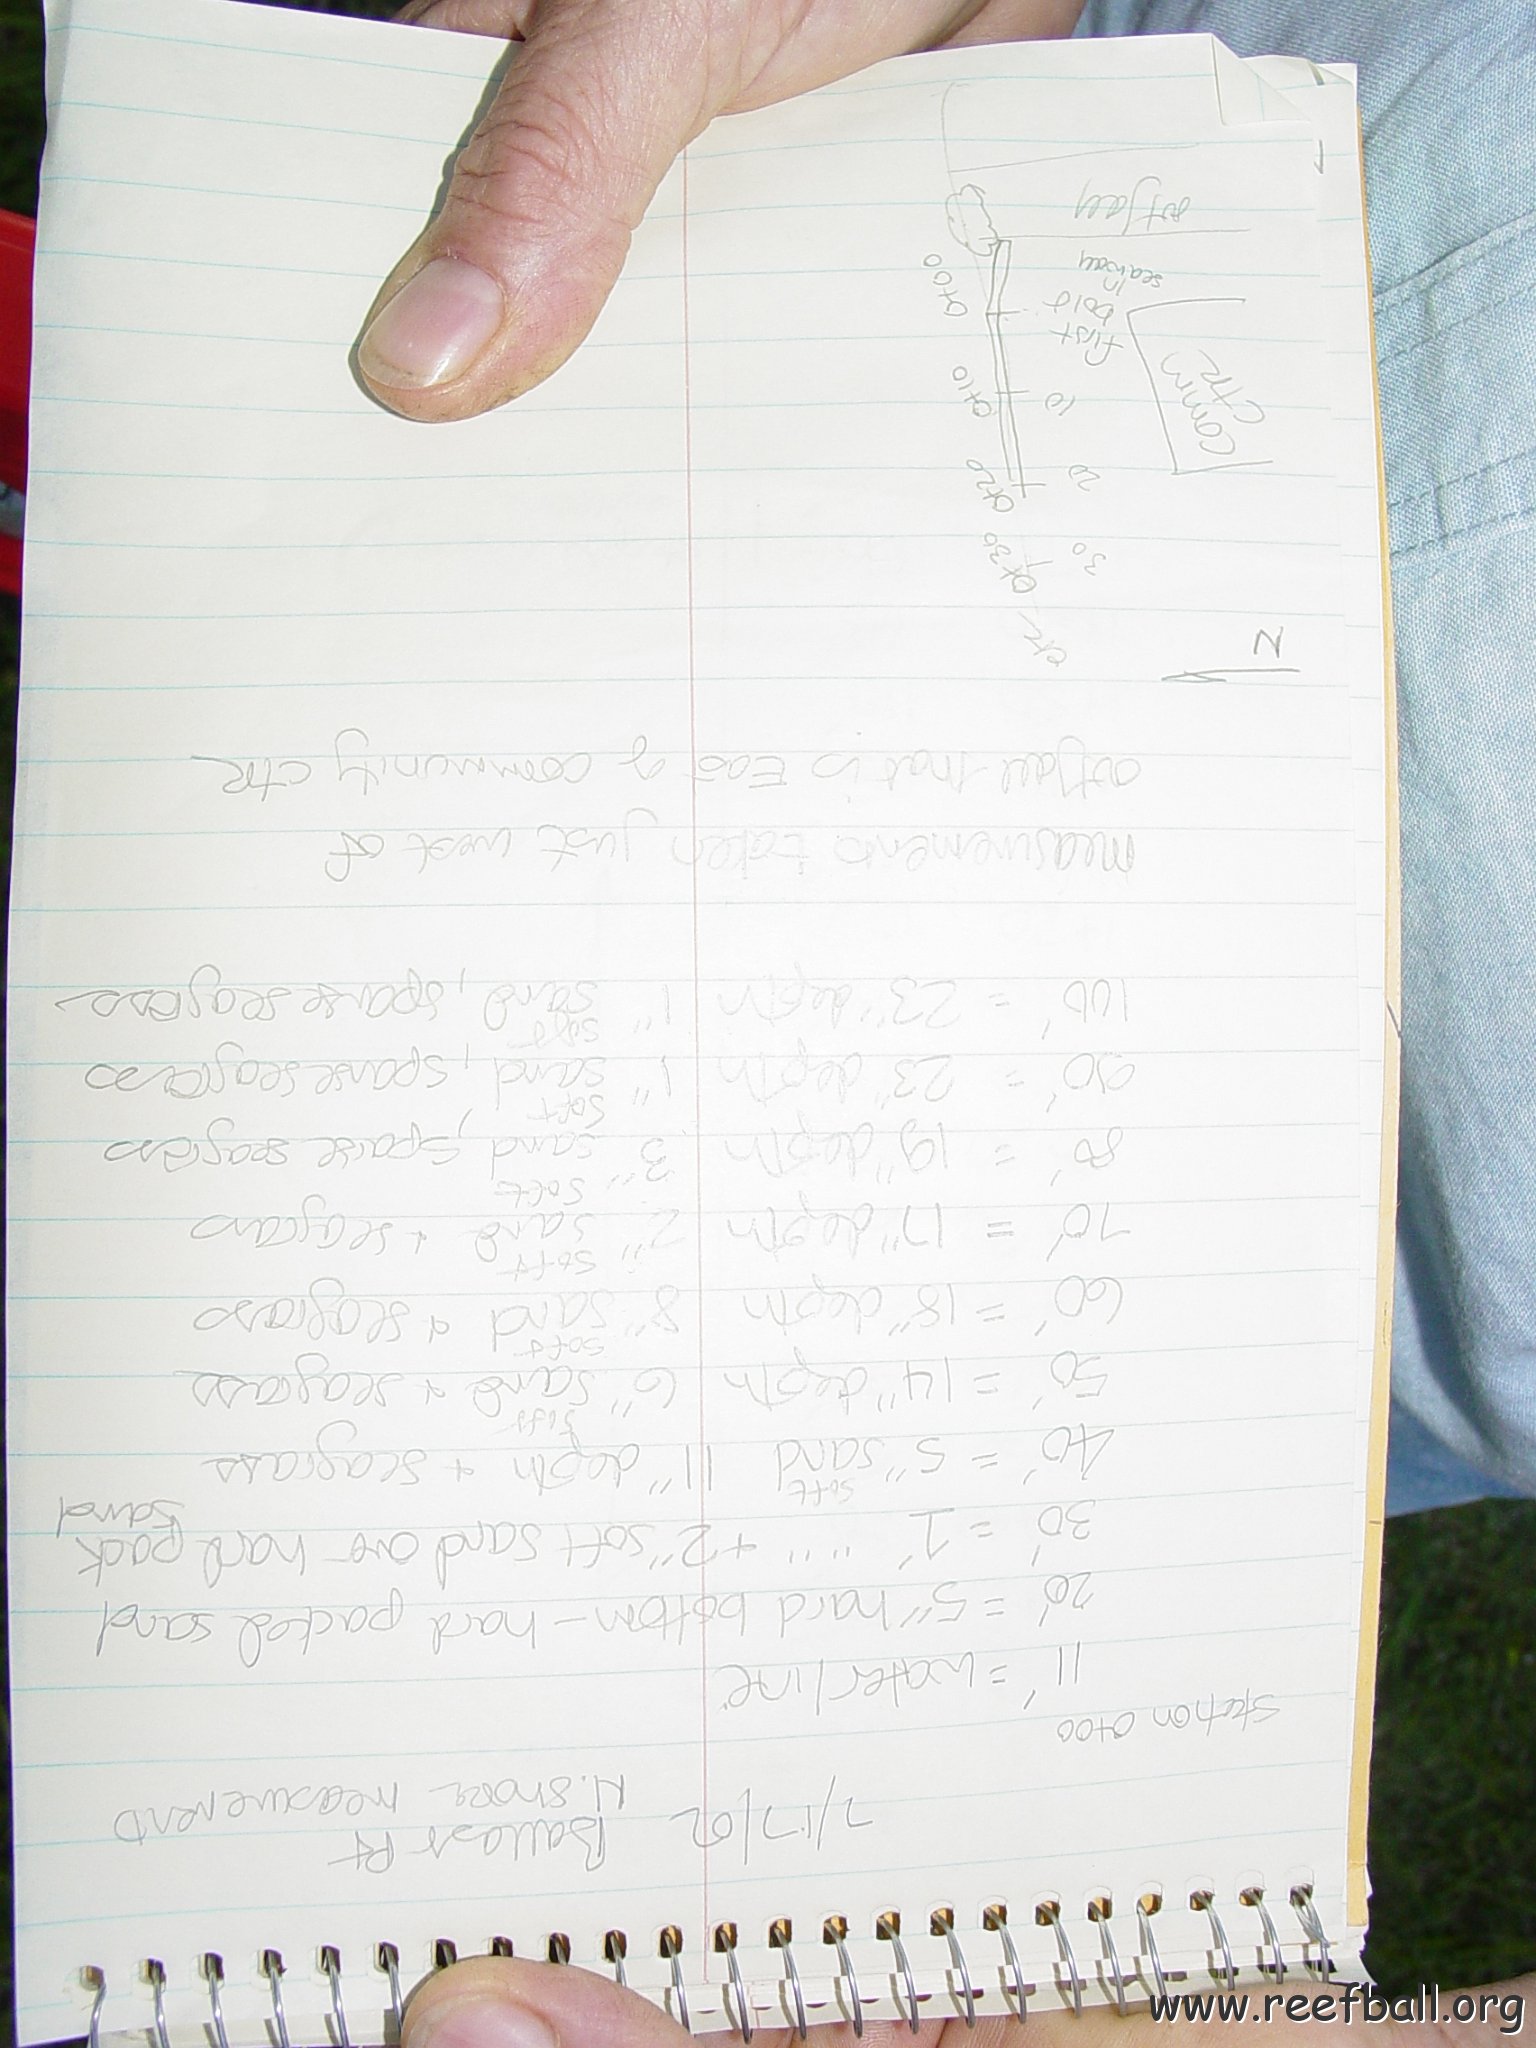 7/17/02 Ballast Pt
N. Shore measurements
Station 0+00
11' = waterline
20' = 5" hard bottom - hard packed sand
30' = 1' "" + 2" soft sand over hard pack sand
40' = 5" soft sand 11" depth + seagrass
50' = 14" depth 6" soft sand + seagrass
60' = 18" depth 8" soft sand + seagrass
70' = 17" depth 2" soft sand + seagrass
80' = 19" depth 3" soft sand, sparse seagrass
90' = 23" depth 1" soft sand, sparse seagrass
100' = 23" depth 1" soft sand, sparse seagrass
measurements taken just west of
outfall that is East of community ctr
N
etc
30 0+30
20 0+20
10 0+10
Comm
CTR
first
bold
in
seaway
0+00
outfall
www.reefball.org